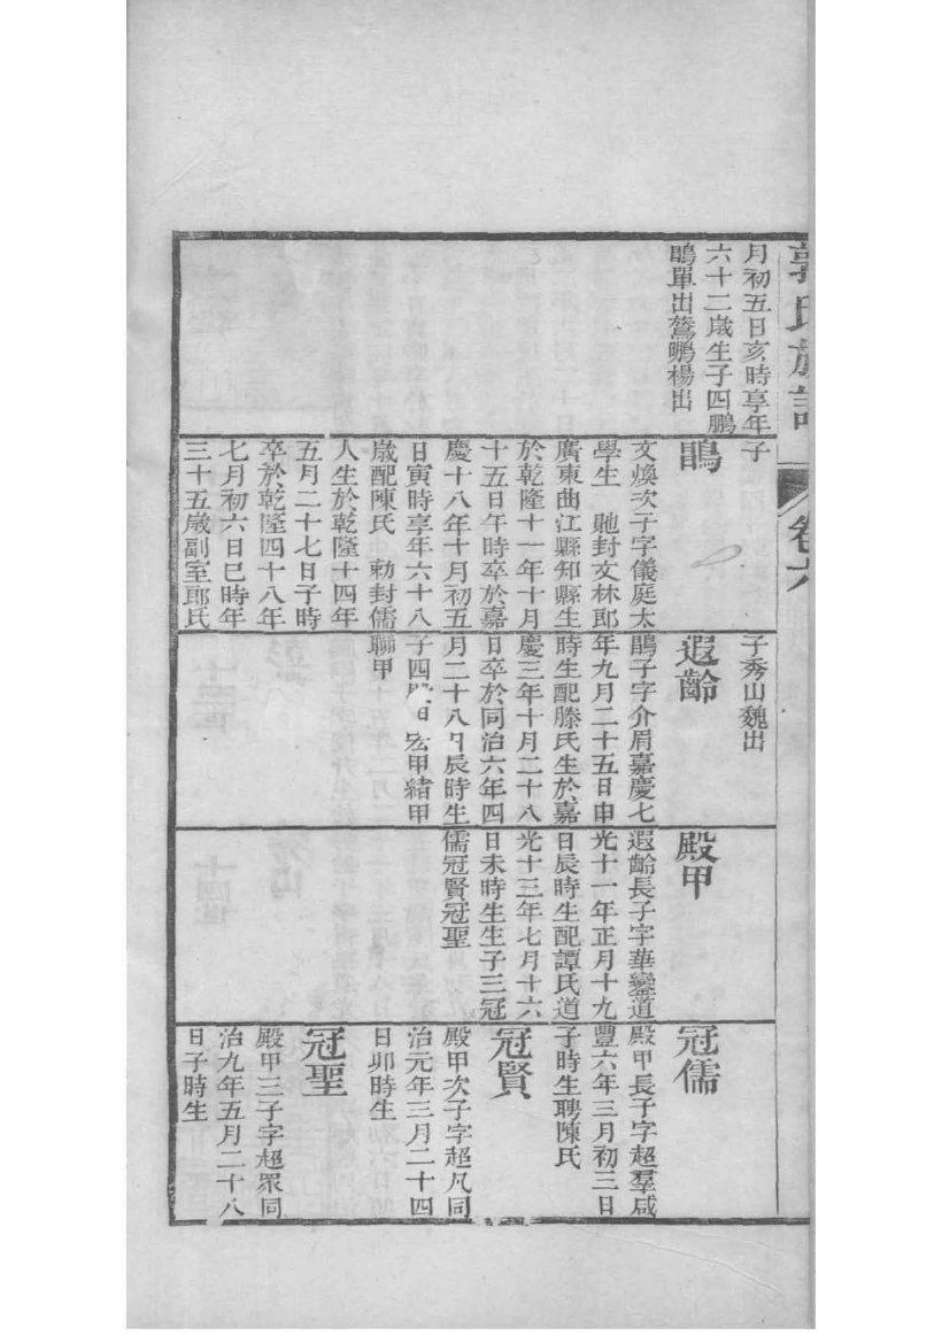 郭氏族譜
卷六
月初五日亥時享年
六十二歲生子四鵬
鵑單出鶩鷃楊出
子
鵑
文煥次子字儀庭太
學生　馳封文林郎
廣東曲江縣知縣生
於乾隆十一年十月
十五日午時卒於嘉
慶十八年十月初五
日寅時享年六十八
歲配陳氏　勅封儒
人生於乾隆十四年
五月二十七日子時
卒於乾隆四十八年
七月初六日巳時年
三十五歲副室郎氏
子秀山魏出
遐齡
鵑子字介眉嘉慶七
年九月二十五日申
時生配滕氏生於嘉
慶三年十月二十八
日卒於同治六年四
月二十八日辰時生
子四殿甲宏甲緒甲
聯甲
殿甲
遐齡長子字華鑾道
光十一年正月十九
日辰時生配譚氏道
光十三年七月十六
日未時生生子三冠
儒冠賢冠聖
冠儒
殿甲長子字超羣咸
豐六年三月初三日
子時生聘陳氏
冠賢
殿甲次子字超凡同
治元年三月二十四
日卯時生
冠聖
殿甲三子字超眾同
治九年五月二十八
日子時生